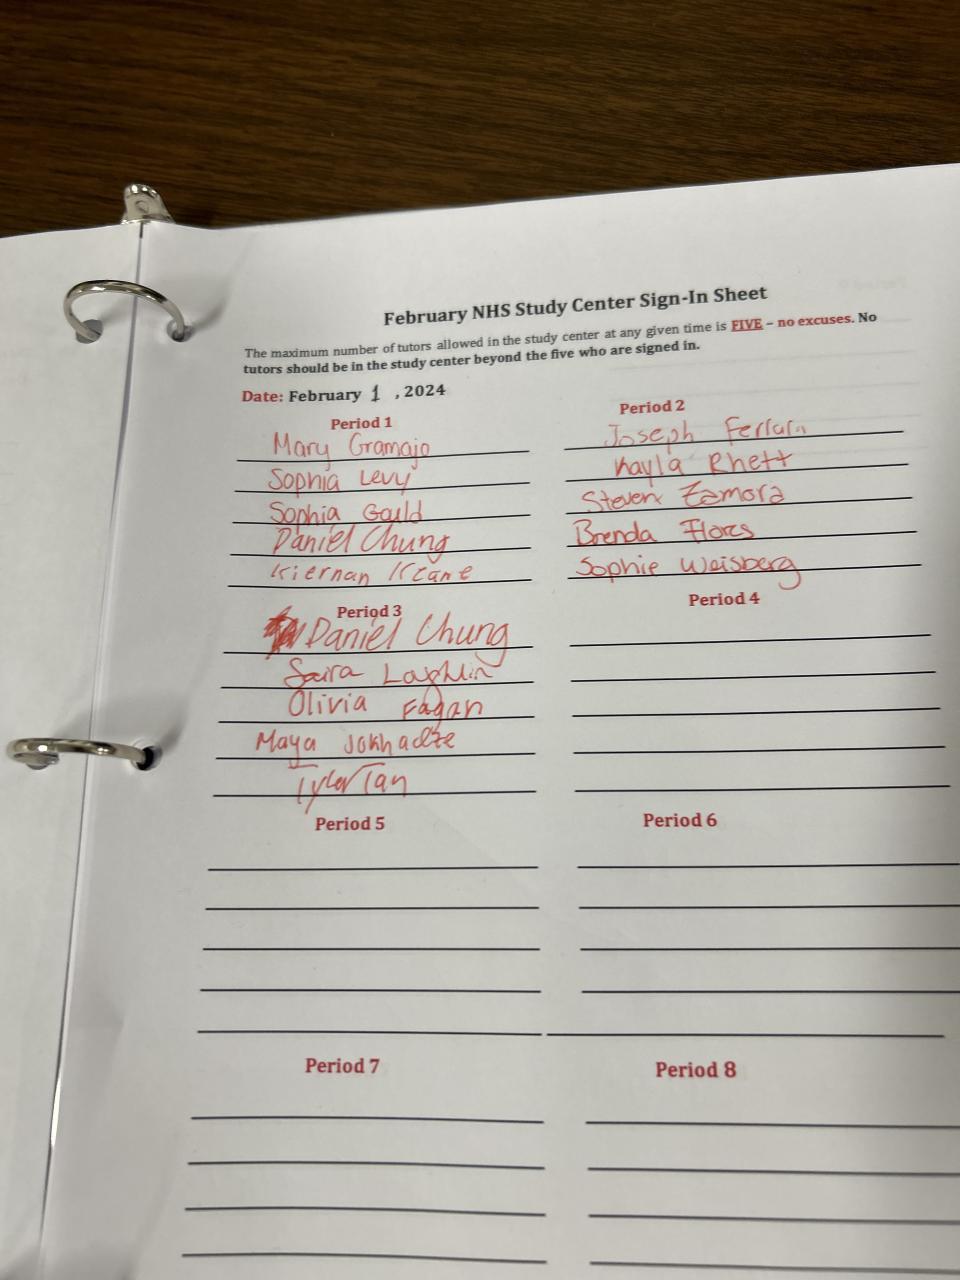 February NHS Study Center Sign-In Sheet
The maximum number of tutors allowed in the study center at any given time is FIVE – no excuses. No
tutors should be in the study center beyond the five who are signed in.
Date: February 1 , 2024
Period 1
Mary Gramajo
Sophia Levy
Sophia Gould
Daniel Chung
Kiernan Keane
Period 2
Joseph Ferrara
Kayla Rhett
Steven Zamora
Brenda Flores
Sophie Weisberg
Period 3
Daniel Chung
Saira Laughlin
Olivia Fagan
Maya Jokhadze
Tyler Tan
Period 4
Period 5
Period 6
Period 7
Period 8